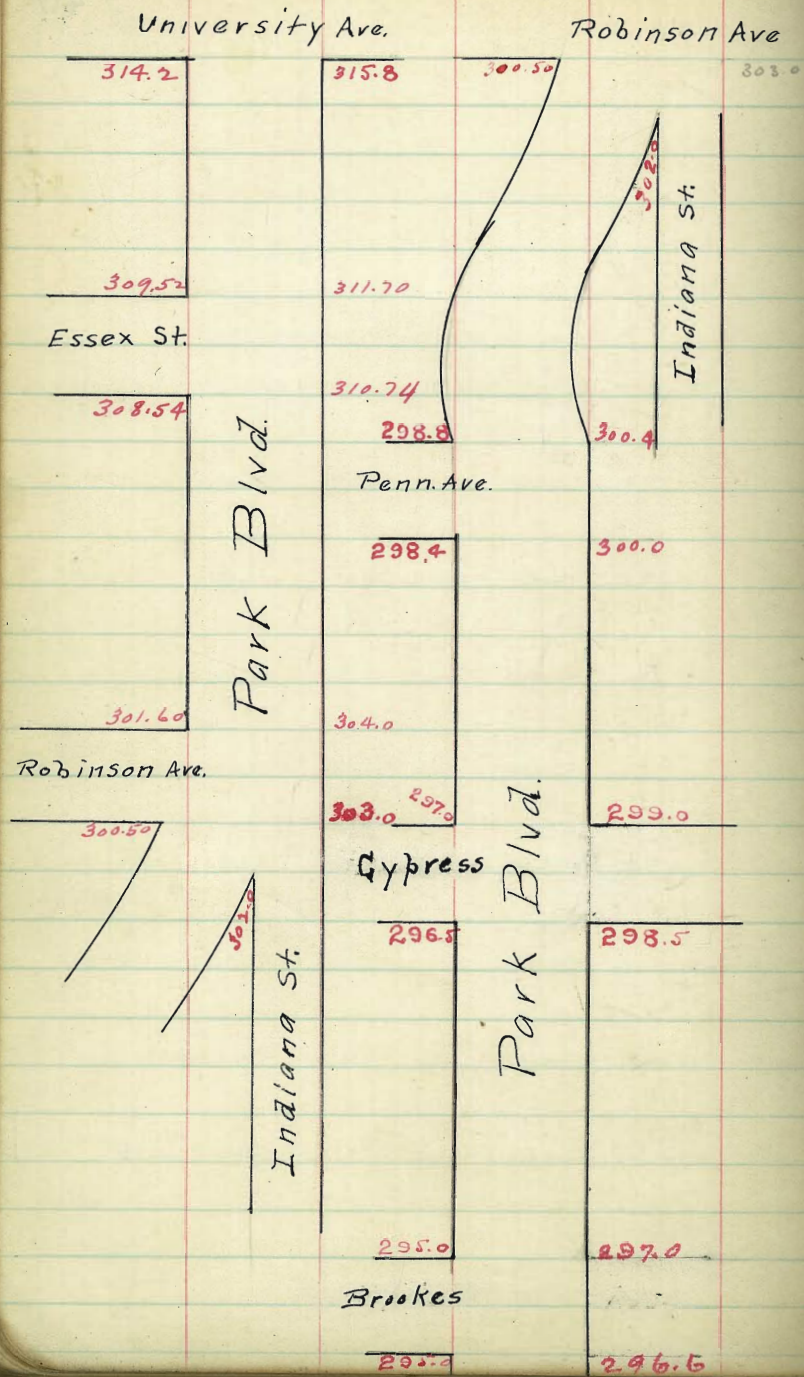 University Ave.
Robinson Ave
314.2
315.8
300.50
303.0
302.0
Indiana St.
309.52
311.70
Essex St.
308.54
310.74
298.8
300.4
Park Blvd.
Penn. Ave.
298.4
300.0
301.60
304.0
Robinson Ave.
300.50
303.0
297.0
299.0
Cypress
302.0
296.5
298.5
Park Blvd.
Indiana St.
295.0
297.0
Brookes
296.6